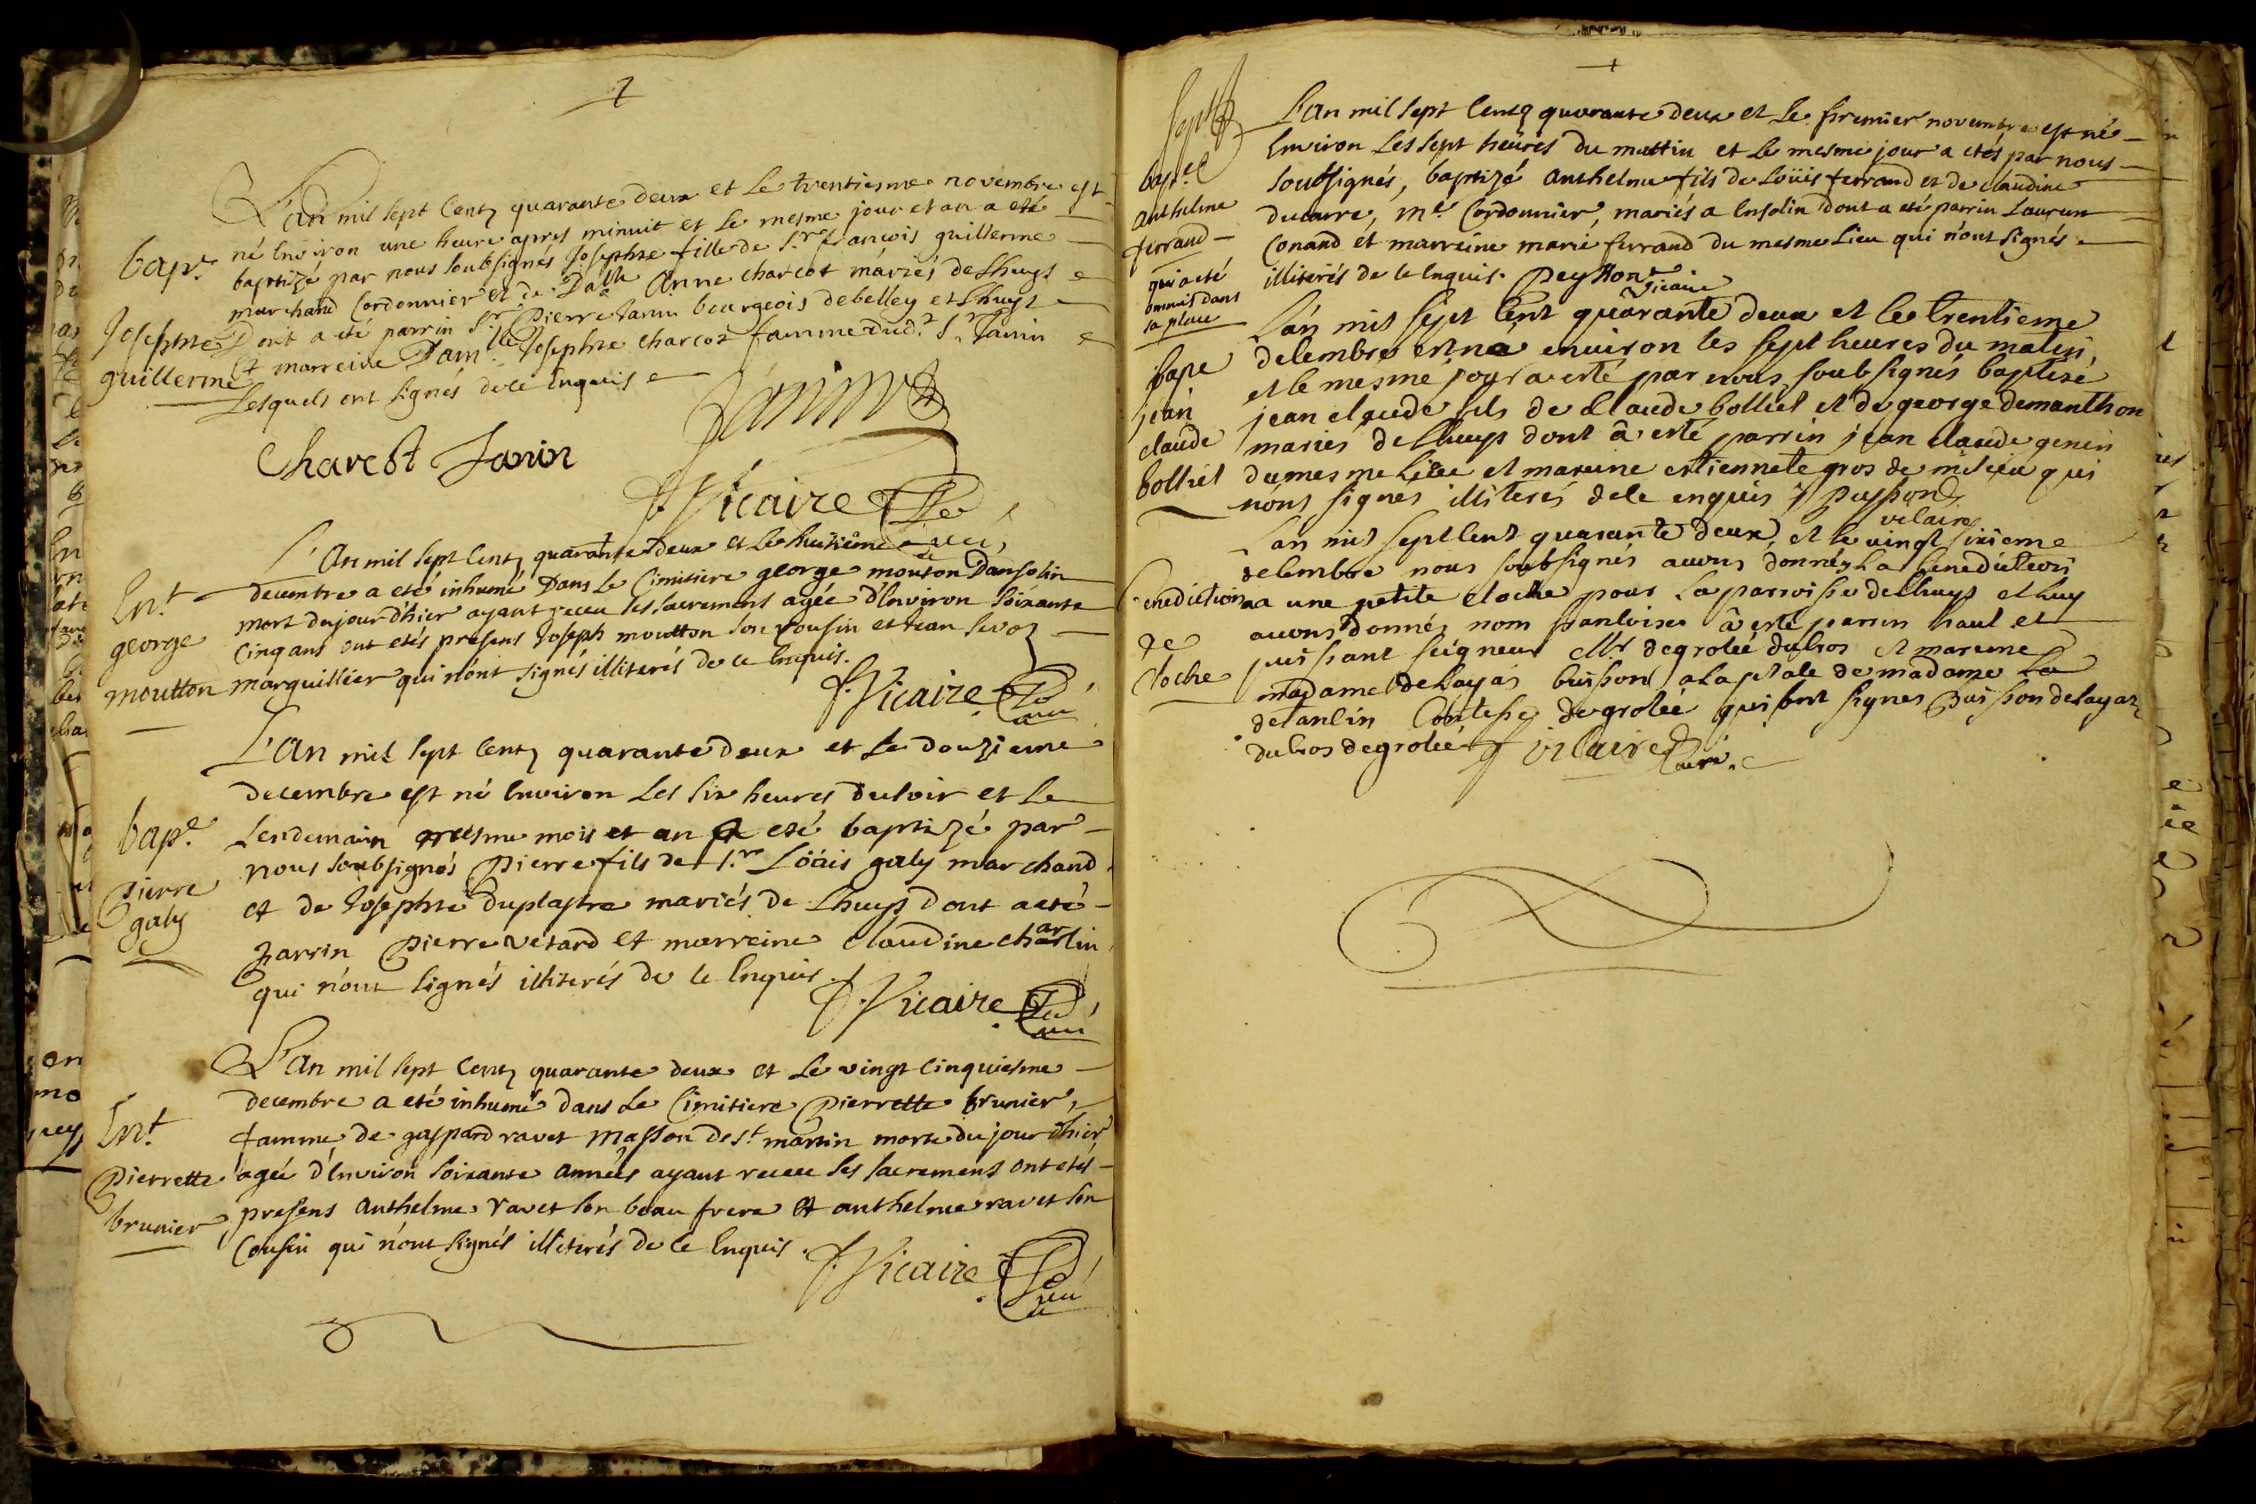 L'an mil sept Centz quarante deux et Le trentiesme novembre est
né Environ une heure apres minuit et Le mesme jour et an a eté
bap.e baptizé par nous soubsignés Josephte fille de S.r françois guillerme
marchand Cordonnier et de Dalle Anne charcot mariés de Lhuys
Josephte Dont a eté parrin S.r Pierre Janin bourgeois debelley et Lhuys
guillerme Et marreine Damlle Josephte charcot famme dud.t S.r Janin
Lesquels ont signés dece Enquis
Janin
Charcot Janin
f. Vicaire Curé
L'An mil sept Centz quarante deux et Le huitième
Ent decembre a eté inhumé Dans Le Cimitiere george mouton Dansolin
mort dujour d'hier ayant receu les sacremens agée d'Environ soixante
george Cinq ans ont etés présens Joseph moutton son cousin et jean
moutton marguillier qui n'ont signés illiterés de ce Enquis.
f. Vicaire Curé
L'An mil sept Centz quarante deux et Le douzieme
decembre est né Environ Les six heures dusoir et Le
bap.e Lendemain mesme mois et an a eté baptizé par
nous soubsignés Pierre fils de S.r Loüis galy marchand
Pierre
galy et de Josephte Duplastre mariés de Lhuys dont aeté
parrin Pierre vetard et marreine Claudine charlin
qui n'ont signés illiterés de ce Enquis.
f. Vicaire Curé
L'An mil sept Centz quarante deux et Le vingt cinquiesme
decembre a eté inhumé dans Le Cimitiere Pierrette brunier,
Ent famme de gaspard ravet Masson de st martin morte du jour d'hier
Pierrette agée d'Environ soixante années ayant receu les sacremens ont etés
brunier presens Anthelme ravet son beau frere et anthelme ravet son
Cousin qui n'ont signés illiterés de ce Enquis.
f. Vicaire Curé
L'an mil sept Centz quarante deux et Le premier novembre est né
Environ Les sept heures du mattin et Le mesme jour a etés par nous
bap.e soubsignés, baptizé anthelme fils de Loüis ferrand et de claudine
anthelme
ducarre, M.e Cordonnier, mariés a Ensolin dont a eté parrin Laurent
ferrand Conand et marreine marie ferrand du mesme Lieu qui n'ont signés
qui a eté
ommis dans
sa place illiterés de ce Enquis. Peysson Vicaire
L'an mil sept Cent quarante deux et le trentieme
bape decembre est né environ les sept heures du matin,
et le mesme jour a esté par nous soubsignés baptisé
jean jean claude fils de Claude bolliet et de george demanthon
claude mariés de Lhuys dont a esté parrin jean claude genin
bolliet dumesme Lieu et mareine estiennete gros de milieu qui
nont signes illiterés dece enquis Peysson
vicaire
L'an mil sept cent quarante deux, et le vingt sixieme
decembre nous soubsignés avons donnés La benediction
benediction a une petite cloche pour La parroisse de Lhuys et Luy
de avons donnés nom francoise a esté parrin haut et
cloche puissant seigneur Mr degrolée dubros et mareine
madame deLayas buisson a La place de madame La
detanlin Contesse degrolée qui ont signes Buisson delayas
dubros degrolée f vicaire Curé